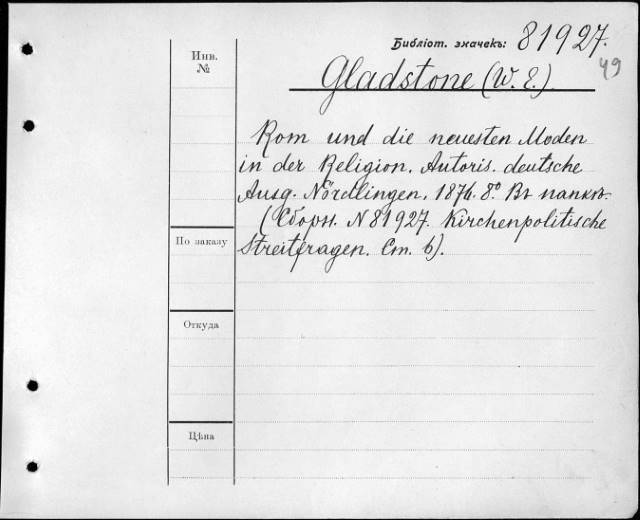 Библіот. значекъ: 81927.
49
Инв.
№
Gladstone (W. E.)
Rom und die neuesten Moden
in der Religion. Autoris. deutsche
Ausg. Nördlingen, 1876. 8° Въ папкѣ.
(Сборн. N 81927. Kirchenpolitische
Streitfragen. Ст. 6).
По заказу
Откуда
Цѣна